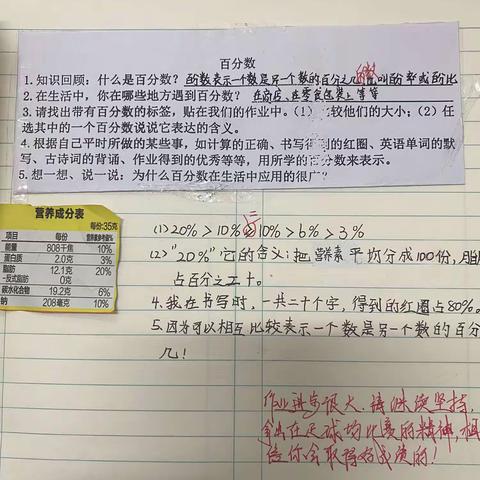 百分数
1. 知识回顾：什么是百分数？ 百分数表示一个数是另一个数的百分之几的数，叫百分率或百分比
2. 在生活中，你在哪些地方遇到百分数？ 在商店、在零食包装上等等
3. 请找出带有百分数的标签，贴在我们的作业中。（1）比较他们的大小；（2）任
选其中的一个百分数说说它表达的含义。
4. 根据自己平时所做的某些事，如计算的正确、书写得到的红圈、英语单词的默
写、古诗词的背诵、作业得到的优秀等等，用所学的百分数来表示。
5. 想一想、说一说：为什么百分数在生活中应用的很广？
营养成分表
每份:35克
项目 每份 营养素参考值%
能量 808千焦 10%
蛋白质 2.0克 3%
脂肪 12.1克 20%
-反式脂肪 0克
碳水化合物 19.2克 6%
钠 208毫克 10%
(1)20%＞10%=10%＞6%＞3%
(2)"20%"它的含义:把营养素平均分成100份,脂肪
占百分之二十。
4.我在书写时,一共二十个字,得到的红圈占80%。
5.因为可以相互比较表示一个数是另一个数的百分
几!
作业进步很大,请继续坚持,
拿出在足球场比赛的精神,相
信你会取得好成绩的!